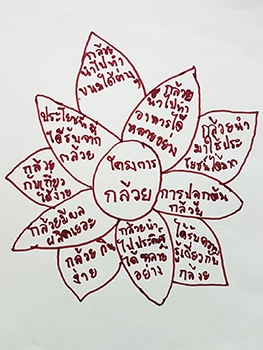 โครงการ
กล้วย
กล้วย
นำไปทำ
ขนมได้ต่างๆ
กล้วย
นำไปทำ
อาหารได้
หลายอย่าง
กล้วยนำ
มาใช้ประ
โยชน์ได้มาก
การปลูกต้น
กล้วย
ได้
รู้เกี่ยวกับ
กล้วย
กล้วยนำ
ไปประดิษฐ์
ได้หลาย
อย่าง
กล้วย กิน
ง่าย
กล้วยมีผล
ผลิตเยอะ
กล้วย
ได้ง่าย
ประโยชน์ที่
ได้รับจาก
กล้วย